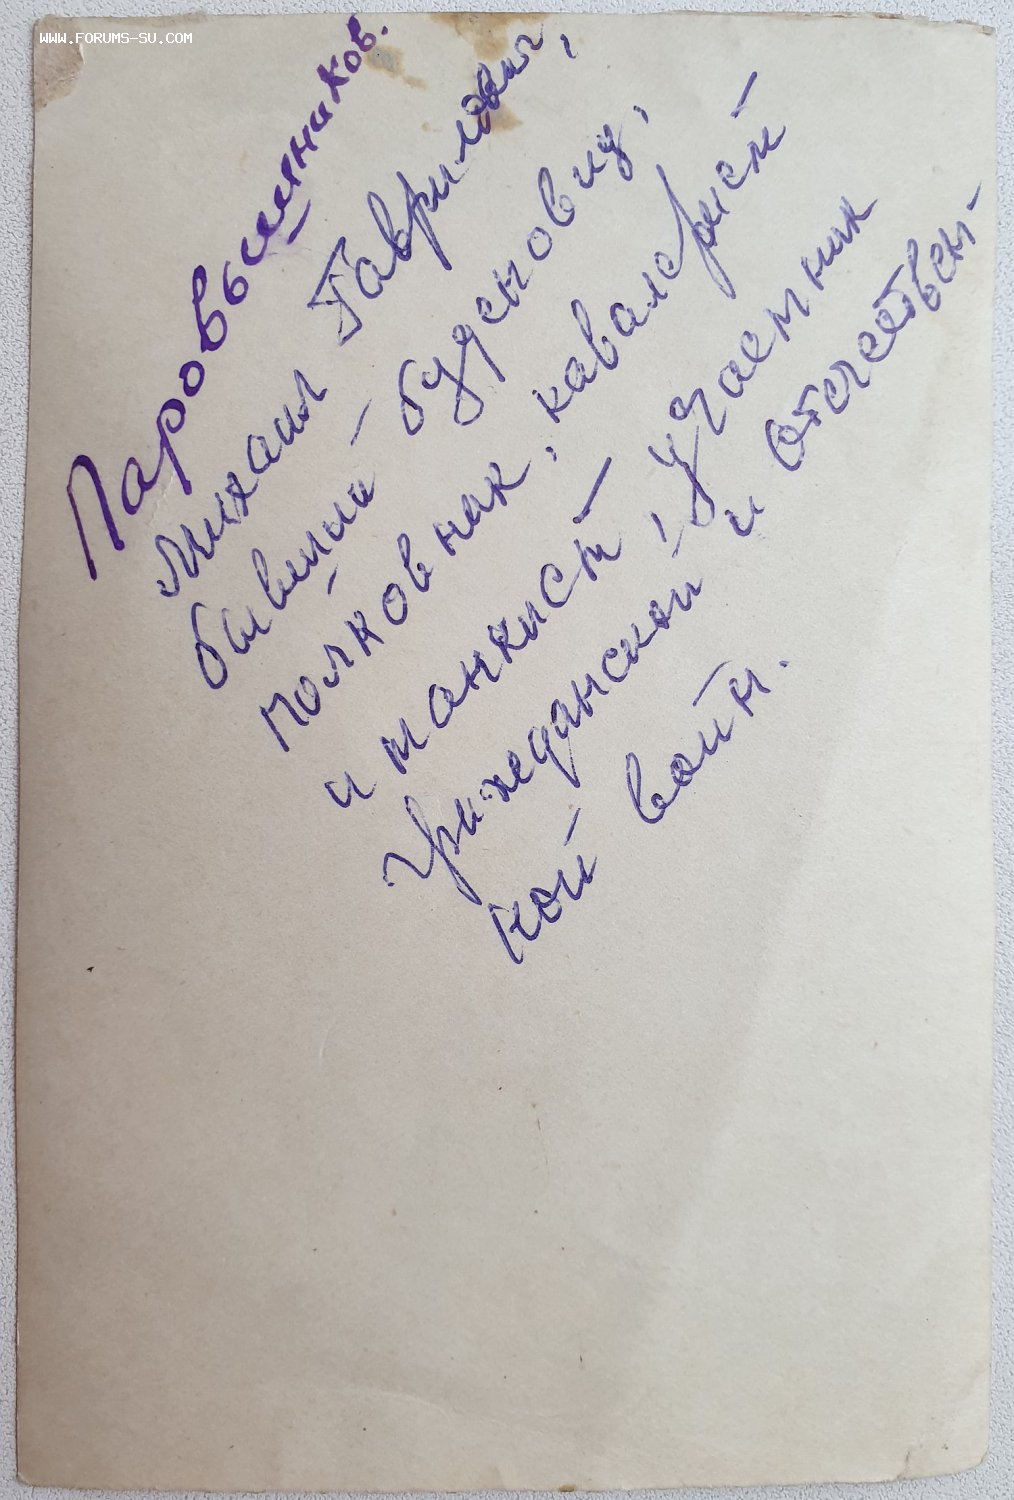 WWW.FORUMS-SU.COM
Михаил Гаврилович,
бывший буденовец,
полковник, кавалерист
и танкист, участник
гражданской и отечествен-
кой войн.